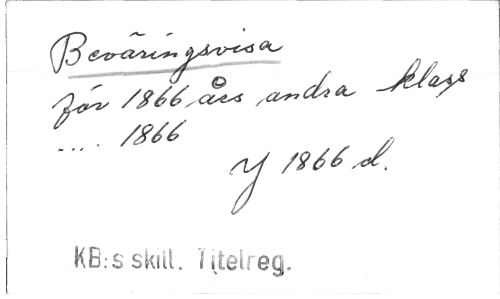 Beväringsvisa
för 1866 års andra klass
.... 1866
Y 1866 d.
KB:s skill. Titelreg.